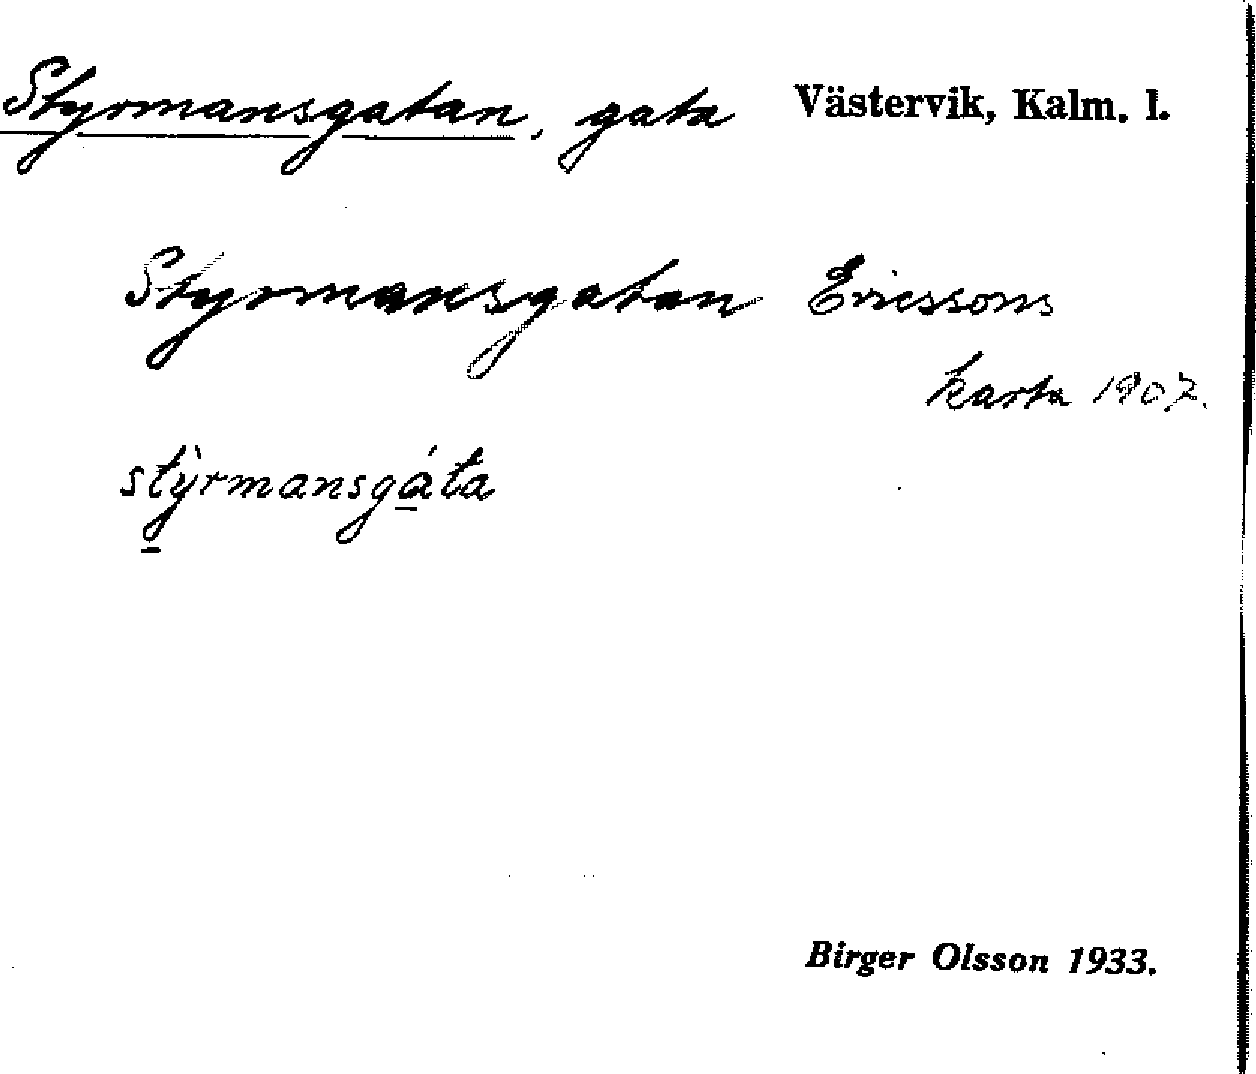 Styrmansgatan, gata Västervik, Kalm. l.
Styrmansgatan Ericssons
karta 1907.
stỳrmansgáta
Birger Olsson 1933.